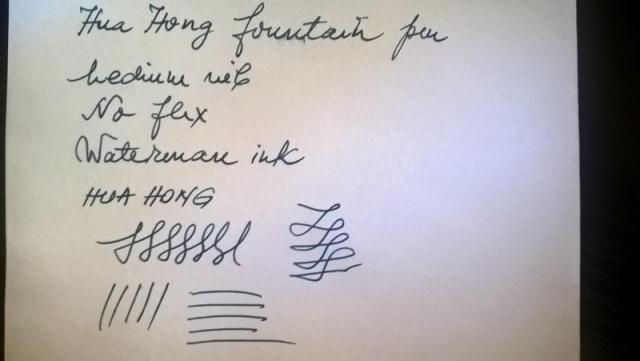 Hua Hong fountain pen
Medium nib
No flex
Waterman ink
HUA HONG